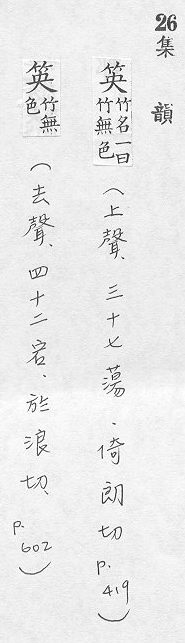 26 集韻
䇦 竹名一曰竹無色 (上聲、三十七蕩.倚朗切 p.419)
䇦 竹無色 (去聲、四十二宕.於浪切、p.602)